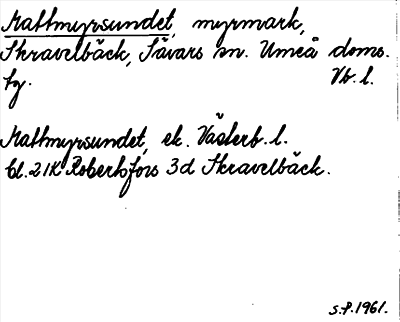 Mattmyrsundet, myrmark,
Skravelbäck, Sävars sn. Umeå doms.
tg. Vb. l.
Mattmyrsundet, ek. Västerb. l.
bl. 21K Robertsfors 3d Skravelbäck.
S.P. 1961.